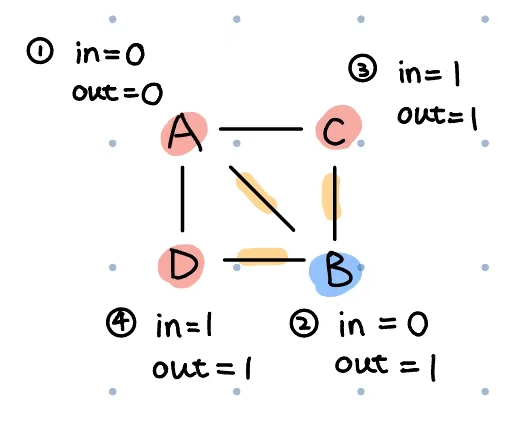 ① in=0
out=0
③ in=1
out=1
A
C
D
B
④ in=1
out=1
② in=0
out=1